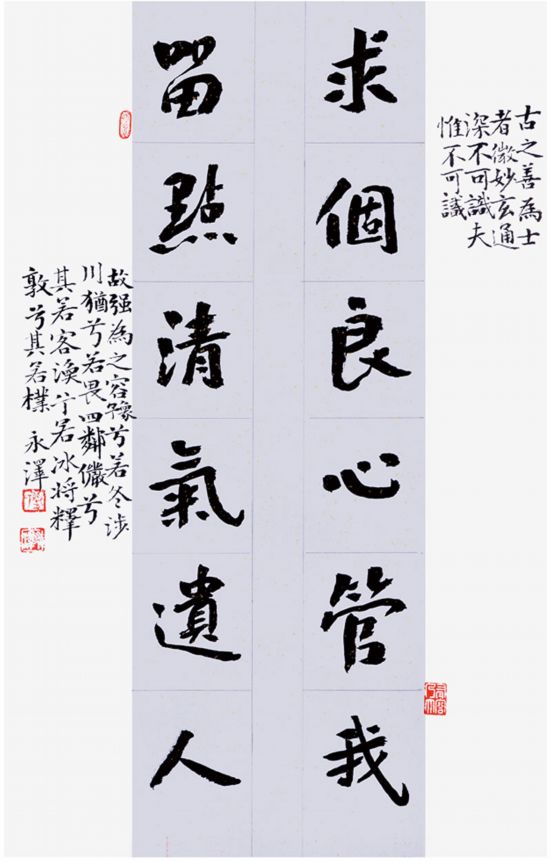 古之善為士
者微妙玄通
深不可識夫
惟不可識
求個良心管我
留點清氣遺人
故强為之容豫兮若冬涉
川猶兮若畏四鄰儼兮
其若客渙兮若冰将釋
敦兮其若樸 永澤